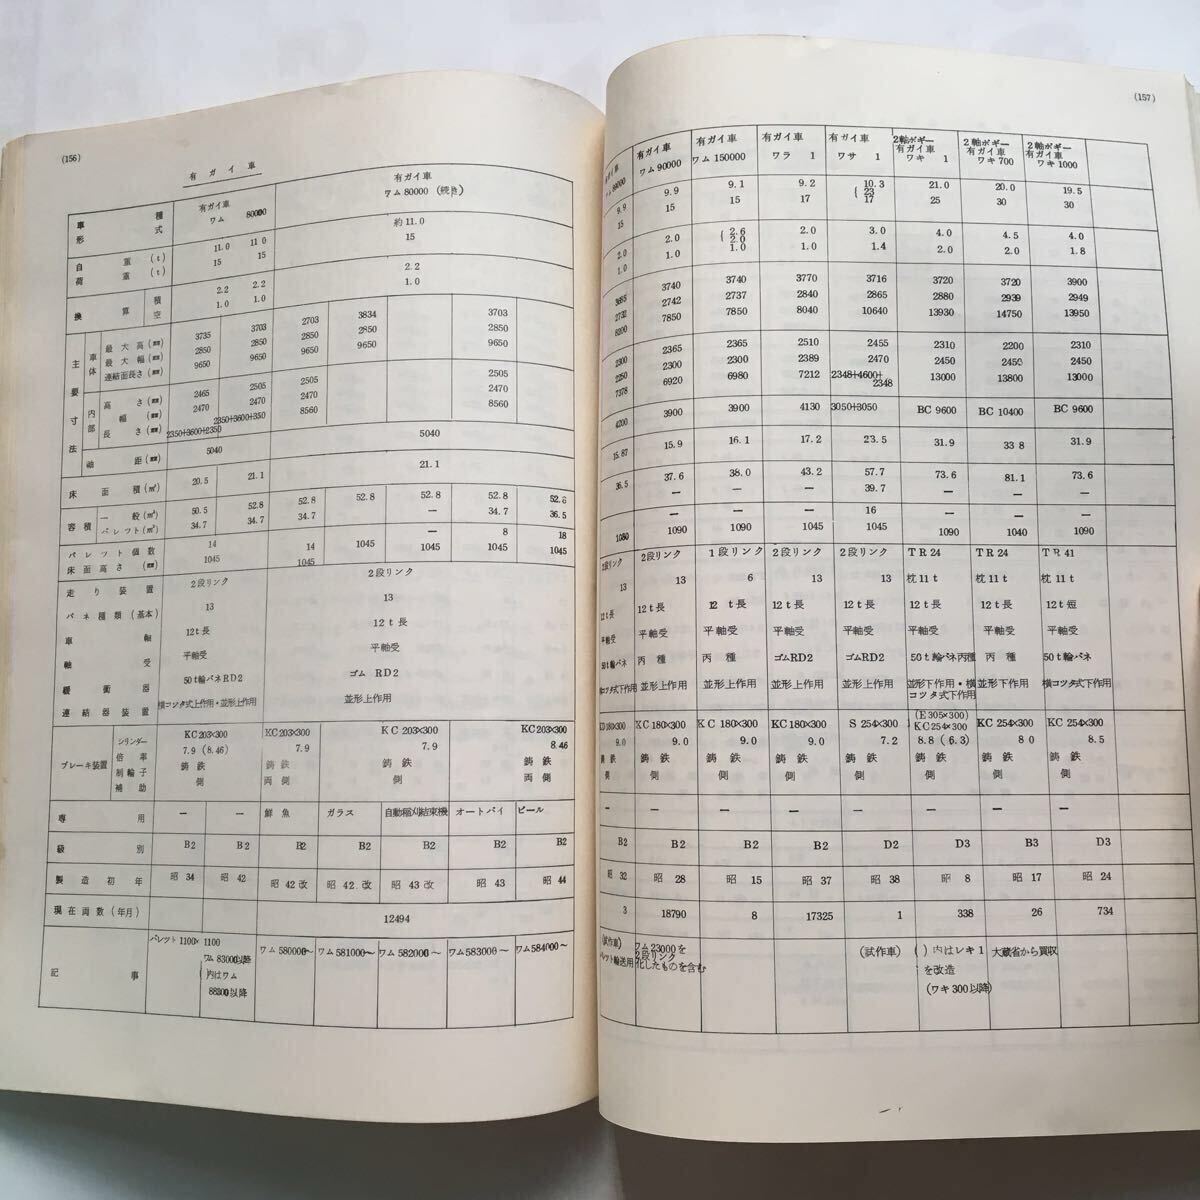 (156)
有ガイ車
車種 有ガイ車 有ガイ車
形式 ワム 80000 ワム 80000 (続き)
自重(t) 11.0 11.0 約11.0
荷重(t) 15 15 15
換算 積 2.2 2.2 2.2
空 1.0 1.0 1.0
主要寸法
車体 最大高(㎜) 3735 3703 2703 3834 3703
最大幅(㎜) 2850 2850 2850 2850 2850
連結面長さ(㎜) 9650 9650 9650 9650 9650
内部 高さ(㎜) 2465 2505 2505 2505
幅(㎜) 2470 2470 2470 2470
長さ(㎜) 2350+3600+2350 2350+3600+350 8560 8560
軸距(㎜) 5040 5040
床面積(㎡) 20.5 21.1 21.1
容積 一般(㎥) 50.5 52.8 52.8 52.8 52.8 52.8 52.8
パレット(㎥) 34.7 34.7 34.7 ー 34.7 36.5
パレット個数 14 14 ー 8 18
床面高さ(㎜) 1045 1045 1045 1045 1045 1045
走り装置 2段リンク 2段リンク
バネ種類(基本) 13 13
車軸 12t長 12t長
軸受 平軸受 平軸受
緩衝器 50t輪バネRD2 ゴム RD2
連結器装置 横コツタ式上作用・並形上作用 並形上作用
ブレーキ装置
シリンダー KC203×300 KC203×300 KC203×300 KC203×300
倍率 7.9(8.46) 7.9 7.9 8.46
制輪子 鋳鉄 鋳鉄 鋳鉄 鋳鉄
補助 側 両側 側 両側
専用 ー ー 鮮魚 ガラス 自動稲刈結束機 オートバイ ビール
級別 B2 B2 B2 B2 B2 B2 B2
製造初年 昭34 昭42 昭42改 昭42.改 昭43改 昭43 昭44
現在両数(年月) 12494
記事 パレット1100×1100 ワム580000〜 ワム581000〜 ワム582000〜 ワム583000〜 ワム584000〜
ワム83000以降
( )内はワム
88300以降
(157)
有ガイ車 有ガイ車 有ガイ車 有ガイ車 2軸ボギー有ガイ車 2軸ボギー有ガイ車 2軸ボギー有ガイ車
ワム90000 ワム150000 ワラ 1 ワサ 1 ワキ 1 ワキ700 ワキ1000
9.9 9.9 9.1 9.2 {10.3 23 21.0 20.0 19.5
15 15 15 17 17 25 30 30
2.0 2.0 {2.6 2.0 2.0 3.0 4.0 4.5 4.0
1.0 1.0 1.0 1.0 1.4 2.0 2.0 1.8
3685 3740 3740 3770 3716 3720 3720 3900
2732 2742 2737 2840 2865 2880 2939 2949
8200 7850 7850 8040 10640 13930 14750 13950
2300 2365 2365 2510 2455 2310 2200 2310
2250 2300 2300 2389 2470 2450 2450 2450
7378 6920 6980 7212 2348+4600+2348 13000 13800 13000
4200 3900 3900 4130 3050+3050 BC 9600 BC 10400 BC 9600
15.87 15.9 16.1 17.2 23.5 31.9 33.8 31.9
36.5 37.6 38.0 43.2 57.7 73.6 81.1 73.6
ー ー ー 39.7 ー ー ー
ー ー ー 16 ー ー ー
1080 1090 1090 1045 1045 1090 1040 1090
2段リンク 2段リンク 1段リンク 2段リンク 2段リンク TR24 TR24 TR41
13 13 6 13 13 枕11t 枕11t 枕11t
12t長 12t長 12t長 12t長 12t長 12t長 12t長 12t短
平軸受 平軸受 平軸受 平軸受 平軸受 平軸受 平軸受 平軸受
50t輪バネ 丙種 丙種 ゴムRD2 ゴムRD2 50t輪バネ丙種 丙種 50t輪バネ
横コツタ式下作用 並形上作用 並形上作用 並形上作用 並形上作用 並形下作用・横コツタ式下作用 並形下作用 横コツタ式下作用
KD180×300 KC180×300 KC180×300 KC180×300 S254×300 (E305×300)KC254×300 KC254×300 KC254×300
9.0 9.0 9.0 9.0 7.2 8.8(6.3) 8.0 8.5
鋳鉄 鋳鉄 鋳鉄 鋳鉄 鋳鉄 鋳鉄 鋳鉄 鋳鉄
側 側 側 側 側 側 側 側
ー ー ー ー ー ー ー ー
B2 B2 B2 B2 D2 D3 B3 D3
昭32 昭28 昭15 昭37 昭38 昭8 昭17 昭24
3 18790 8 17325 1 338 26 734
(試作車) ワム23000を (試作車) ( )内はレキ1 大蔵省から買収
パレット輸送用 2段リンク を改造
化したものを含む (ワキ300以降)